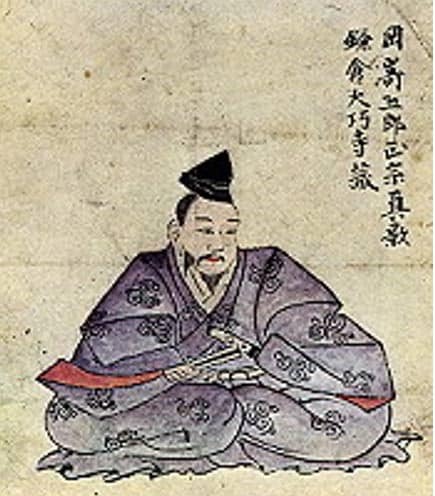 岡嵜五郎正宗真影
鎌倉大巧寺蔵